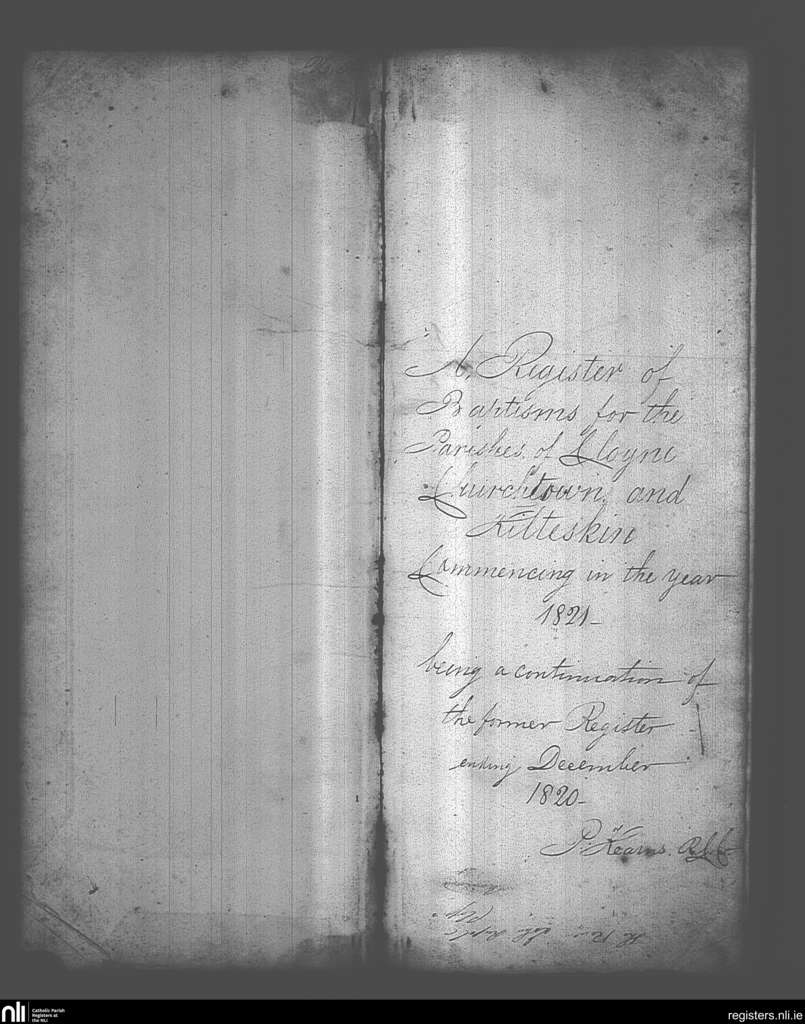 A Register of
Baptisms for the
Parishes of Cloyne
Churchtown and
Kilteskin
Commencing in the year
1821-
being a continuation of
the former Register
ending December
1820-
P. Kearns
nli
Catholic Parish
Registers at
the NLI
registers.nli.ie